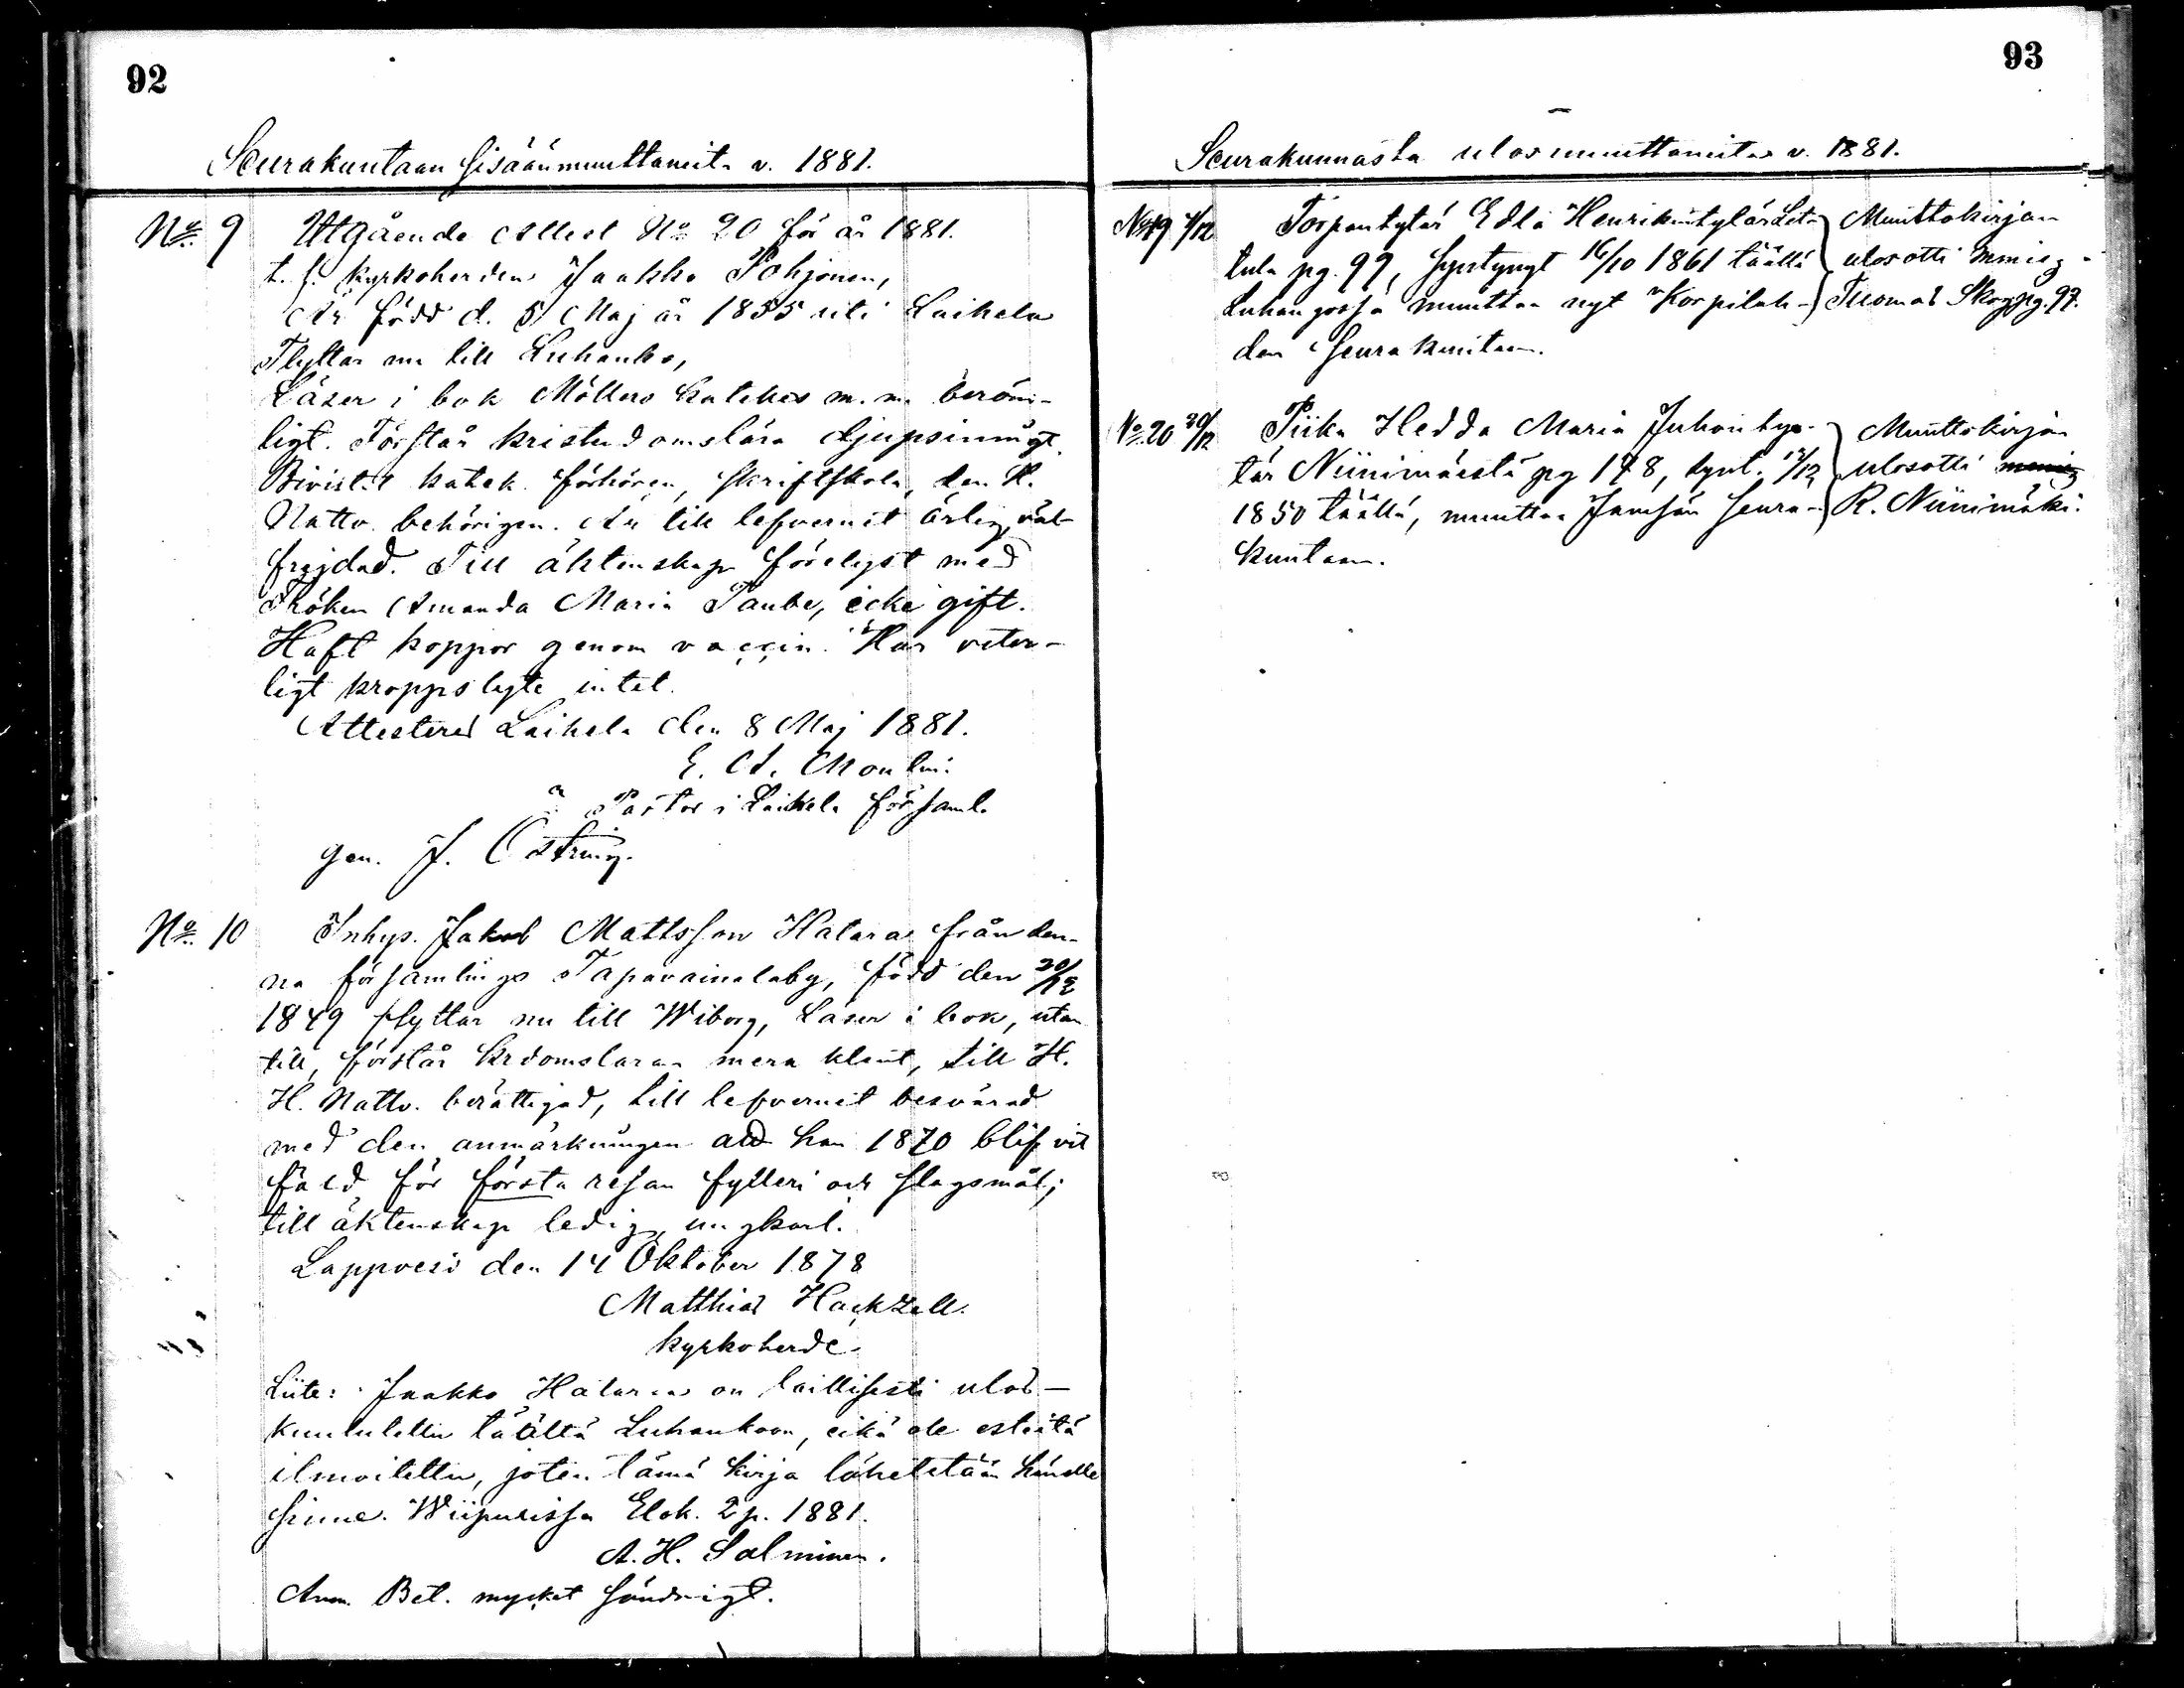 92
Seurakuntaan sisäänmuuttaneita v. 1881.
No. 9 Utgående Attest No 20 för år 1881.
t. f. kyrkoherden Jaakko Pohjonen,
Är född d. 5 Maj år 1855 uti Laihela
Flyttar nu till Luhanko,
Läser i bok Möllers Katekes m.m. beröm-
ligt. Förstår kristendomslära djupsinnigt.
Bivistat katek. förhören, skriftskola, den H.
Nattv. behörigen. Är till lefvernet ärlig, väl-
frejdad. Till äktenskap förelyst med
Fröken Amanda Maria Taube, icke gift.
Haft koppor genom vaccin. Har veter-
ligt kroppslyte intet.
Attesterad Laihela den 8 Maj 1881.
E. A.
Pastor i Laihela församl.
gen. J. Östring.
No. 10 Inhys. Jakob Mattsson Hatara från den-
na församlings Tapavainolaby, född den 20/12
1849 flyttar nu till Wiborg, Läser i bok, utan
till, förstår krdomslaran mera klent, till H.
H. Nattv. berättigad, till lefvernet besvärad
med den anmärkningen att han 1870 blifvit
fäld för första resan fylleri och slagsmål;
till äktenskap ledig, ungkarl.
Lappvesi den 14 Oktober 1878
Matthias Hackzell.
kyrkoherde
Liite: Jaakko Hatara on laillisesti ulos-
kuulutettu täältä Luhankoon, eikä ole esteitä
ilmoitettu, joten tämä kirja lähetetään hänelle
sinne. Wiipurissa Elok. 2 p. 1881.
A. H. Salminen.
Anm. Bet. mycket söndrigt.
93
Seurakunnasta ulosmuuttaneita v. 1881.
No 19 7/12 Torpantytär Edla Henrikintytär Leta- Muuttokirjan
tula pg. 99, syntynyt 16/10 1861 täällä ulosotti
Luhangossa muuttaa nyt Korpilah- Tuomas Skog pg. 97.
den seurakuntaan.
No. 20 20/12 Piika Hedda Maria Juhontyt- Muuttokirjan
tär Niinimäestä pg 148, synt. 13/12 ulosotti
1850 täällä, muuttaa Jämsän seura- R. Niinimäki.
kuntaan.